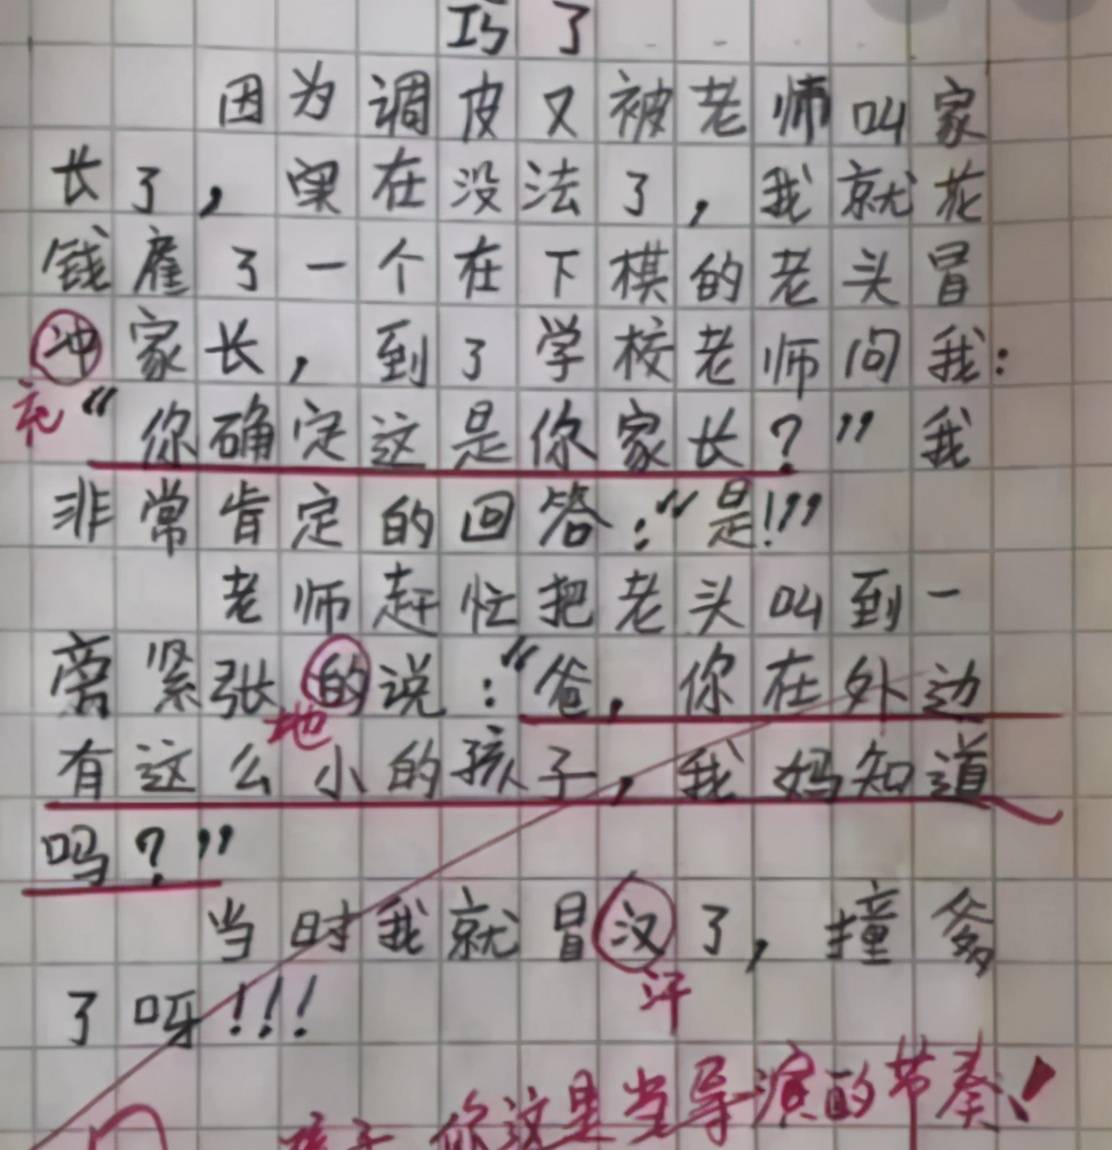 巧了
因为调皮又被老师叫家
长了，实在没法了，我就花
钱雇了一个在下棋的老头冒
冲家长，到了学校老师问我：
充“你确定这是你家长？”我
非常肯定的回答：“是！”
老师赶忙把老头叫到一
旁紧张的说：“爸，你在外边
地
有这么小的孩子，我妈知道
吗？”
当时我就冒汉了，撞爹
汗
了呀！！！
孩子，你这是当导演的节奏！